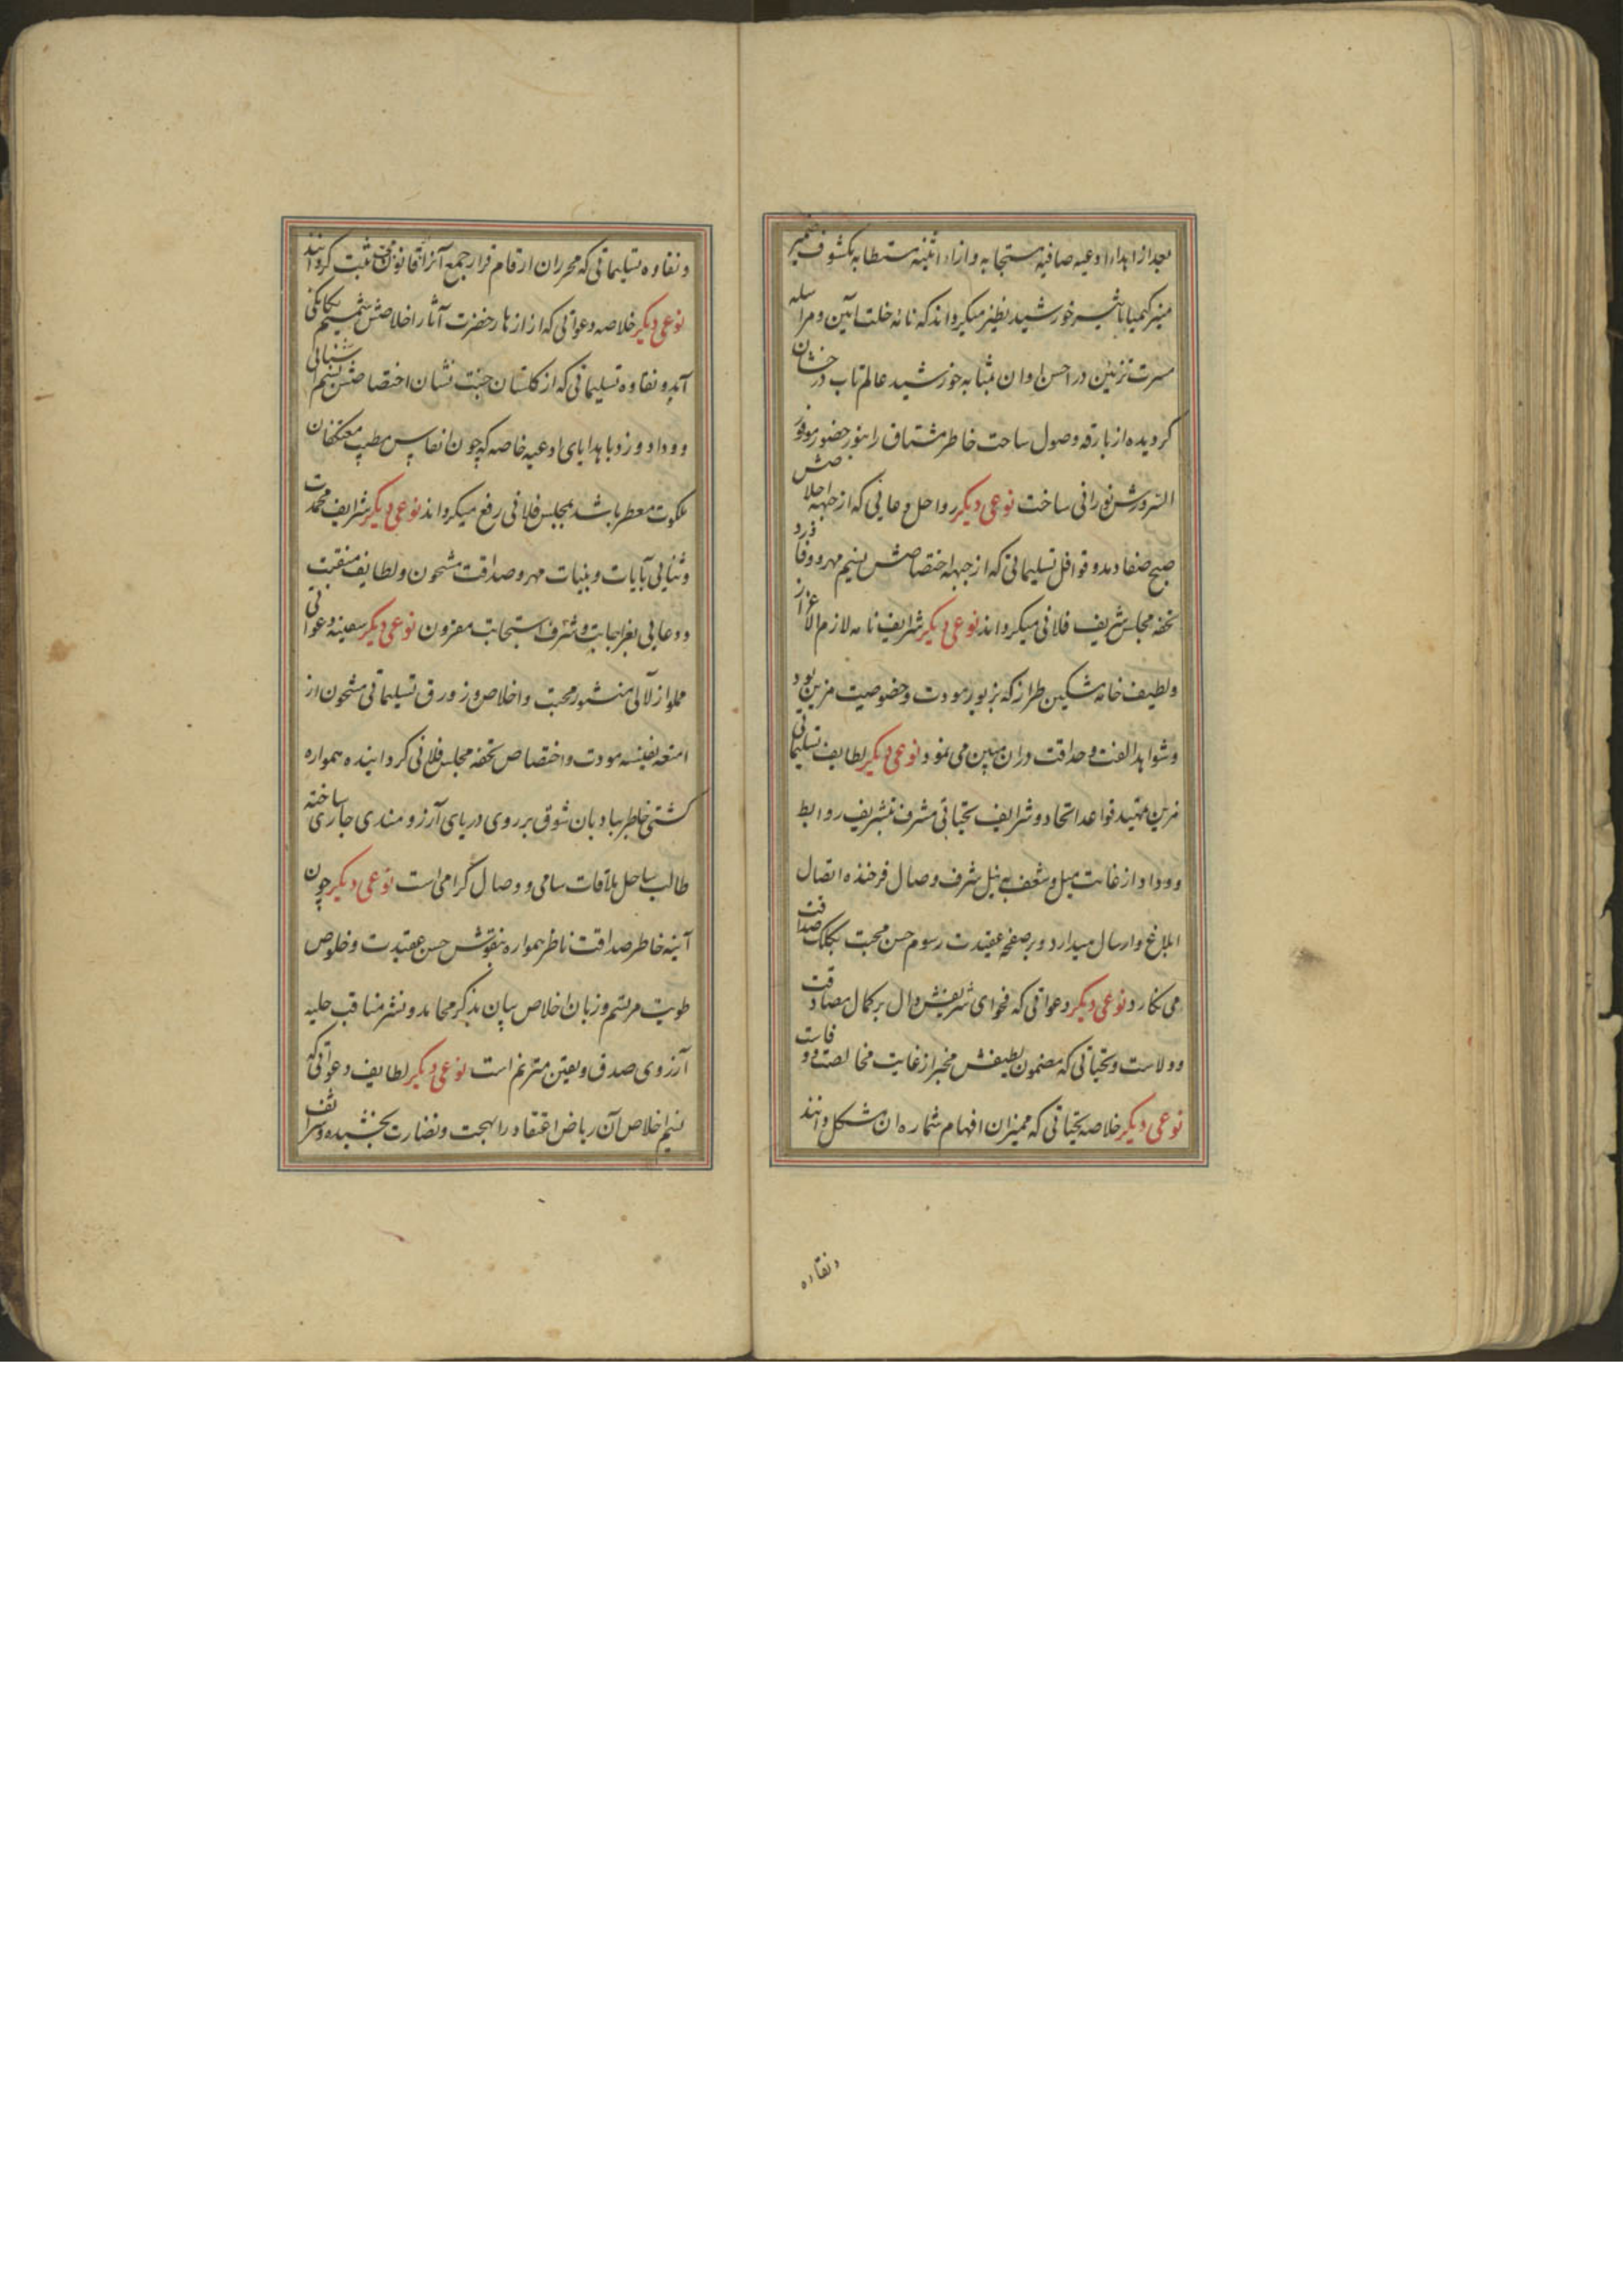 بعد از اهدا ادعیه صافیه مستجابه و ازاء اثنیه مستطابه مکشوف ضمیر
منیر کیمیا تاثیر خورشید نظیر میگرداند که نامه خلت آیین و مراسله
مسرت تزیین در احسن اوان بمثابه خورشید عالم تاب درخشان
کردیده از بارقه وصول ساحت خاطر مشتاق را بنور حضور موفور
السرورش نورانی ساخت نوعی دیکر رواحل دعایی که از جبهه اخلاصش
صبح صفا دمد و قوافل تسلیماتی که از جبهه اختصاصش نسیم مهر و وفا وزد
تحفه مجلس شریف فلانی میکرداند نوعی دیکر شرایف نامه لازم الاعزاز
و لطیف خامه مشکین طراز که بزیور مودت و خصوصیت مزین بود
و شواهد الفت و صداقت دران مبین می نمود نوعی دیکر لطایف تسلیماتی
مزین بتمهید قواعد اتحاد و شرایف تحیاتی مشرف بتشریف روابط
و وداد از غایت میل و شعف به نیل شرف وصال فرخنده اتصال
ابلاغ و ارسال میدارد و بر صفحه عقیدت رسوم حسن محبت بکلک صداقت
می نکارد نوعی دیکر دعواتی که فحوای شریفش دال بر کمال مصادقت
و ولاست و تحیاتی که مضمون لطیفش مخبر از غایت مخالصت و وفاست
نوعی دیکر خلاصه تحیاتی که ممیزان افهام شماره ان مشکل دانند
و نقاوه
و نقاوه تسلیماتی که محرران ارقام قرار جمع آنرا قانون ثبت کردانند
نوعی دیکر خلاصه دعواتی که از ازهار حضرت آثار اخلاصش شمیم یکانکی
آید و نقاوه تسلیماتی که از کلستان جنت نشان اختصاصش نسیم آشنائی
و وداد وزد با هدایای ادعیه خاصه که چون انفاس طیب معتکفان
ملکوت معطر باشد بمجلس فلانی رفع میکرداند نوعی دیکر شرایف محمدت
و ثنایی بآیات و بینات مهر و صداقت مشحون و لطایف منقبت
و دعایی بعز اجابت و شرف استجابت مقرون نوعی دیکر سفینه دعواتی
مملو از لآلی منثور محبت و اخلاص و زورق تسلیماتی مشحون از
امتعه نفیسه مودت و اختصاص تحفه مجلس فلانی کردانیده همواره
کشتی خاطر ببادبان شوق بر روی دریای آرزومندی جاری ساخته
طالب ساحل ملاقات سامی و وصال کرامی است نوعی دیکر چون
آینه خاطر صداقت ناظر همواره بنقوش حسن عقیدت و خلوص
طویت مرتسم و زبان اخلاص بیان بذکر محامد و نشر مناقب جلیه
آرزوی صدق و یقین مترنم است نوعی دیکر لطایف دعواتی که
نسیم اخلاص آن ریاض اعتقاد را بهجت و نضارت بخشیده و شرایف